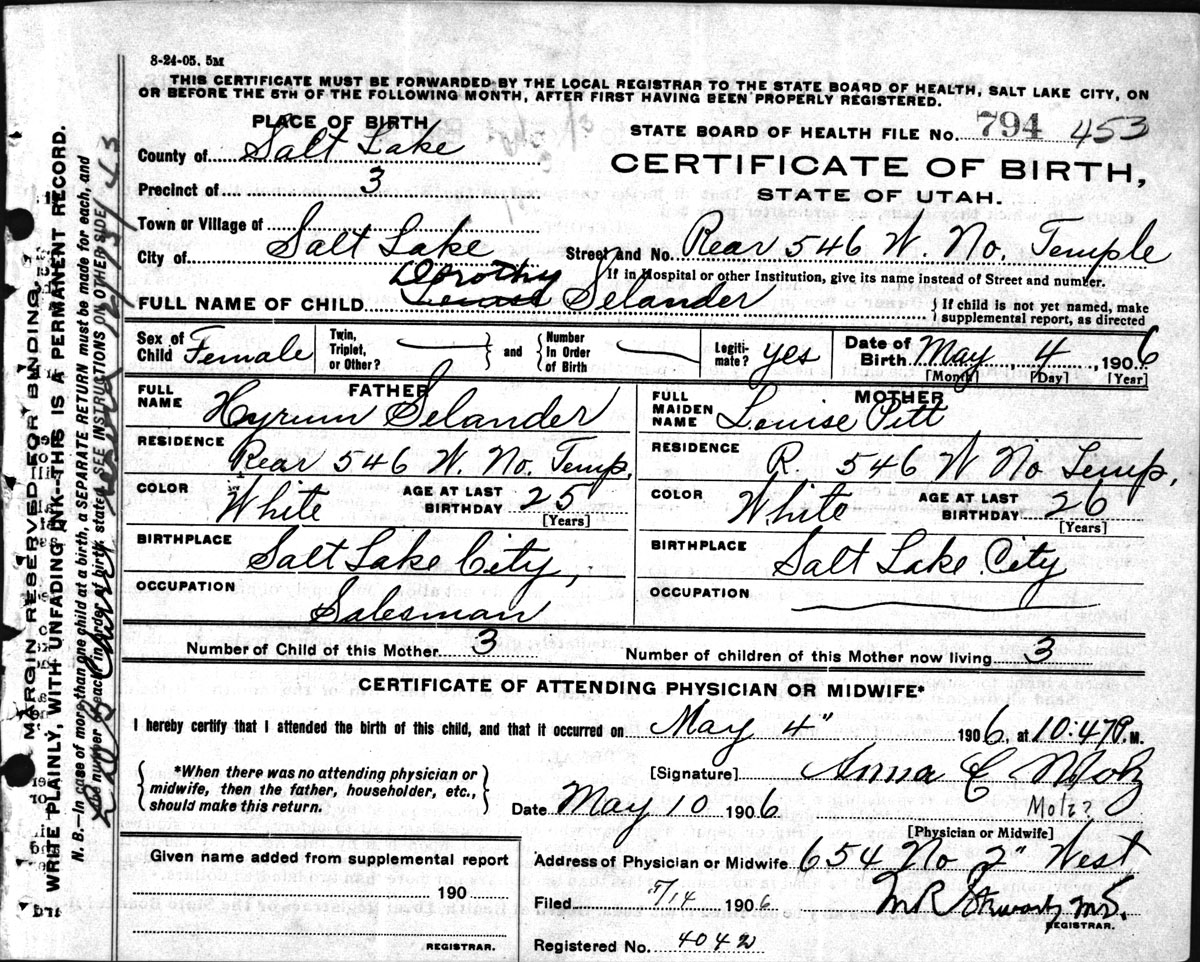 8-24-05. 5M
THIS CERTIFICATE MUST BE FORWARDED BY THE LOCAL REGISTRAR TO THE STATE BOARD OF HEALTH, SALT LAKE CITY, ON
OR BEFORE THE 5TH OF THE FOLLOWING MONTH, AFTER FIRST HAVING BEEN PROPERLY REGISTERED.
PLACE OF BIRTH
STATE BOARD OF HEALTH FILE No. 794 453
County of Salt Lake
CERTIFICATE OF BIRTH,
Precinct of 3
STATE OF UTAH.
Town or Village of
City of Salt Lake
Street and No. Rear 546 W. No. Temple
If in Hospital or other Institution, give its name instead of Street and number.
Dorothy
FULL NAME OF CHILD Selander
If child is not yet named, make
supplemental report, as directed
Sex of Child Female
Twin, Triplet, or Other?
and
Number In Order of Birth
Legiti-mate? yes
Date of Birth May 4, 1906
[Month] [Day] [Year]
FATHER
FULL NAME Hyrum Selander
MOTHER
FULL MAIDEN NAME Louise Pitt
RESIDENCE Rear 546 W. No. Temp.
RESIDENCE R. 546 W No Temp.
COLOR White AGE AT LAST BIRTHDAY 25 [Years]
COLOR White AGE AT LAST BIRTHDAY 26 [Years]
BIRTHPLACE Salt Lake City,
BIRTHPLACE Salt Lake City
OCCUPATION Salesman
OCCUPATION
Number of Child of this Mother 3
Number of children of this Mother now living 3
CERTIFICATE OF ATTENDING PHYSICIAN OR MIDWIFE*
I hereby certify that I attended the birth of this child, and that it occurred on May 4" 1906, at 10:47 P. M.
*When there was no attending physician or
midwife, then the father, householder, etc.,
should make this return.
[Signature] Anna C Motz
Date May 10 1906
Motz?
[Physician or Midwife]
Given name added from supplemental report
190
REGISTRAR.
Address of Physician or Midwife 654 No 2" West
Filed 5/14 1906
M R Stewart M.D.
REGISTRAR.
Registered No. 4042
MARGIN RESERVED FOR BINDING.
WRITE PLAINLY, WITH UNFADING INK--THIS IS A PERMANENT RECORD.
N. B.—In case of more than one child at a birth a SEPARATE RETURN must be made for each, and
the number of each, in order of birth, stated. SEE INSTRUCTIONS ON OTHER SIDE